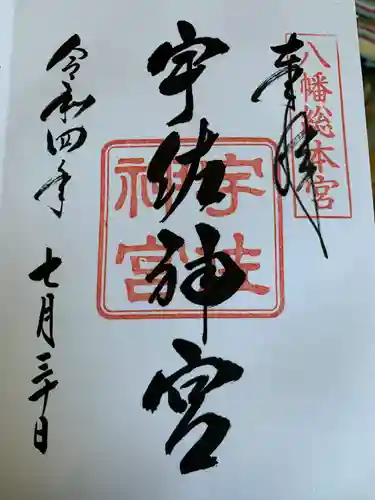 八幡総本宮
奉拝
宇佐神宮
宇佐
神宮
令和四年
七月三十日